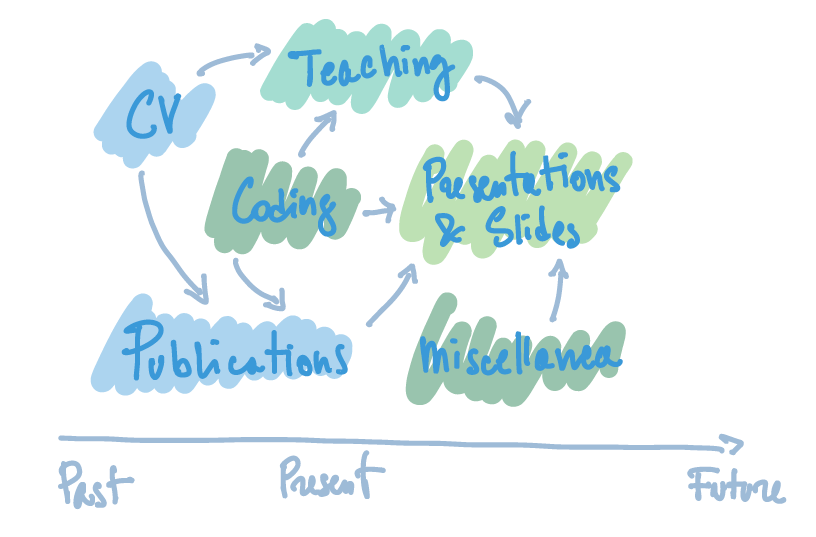 Teaching
CV
Coding
Presentations
& Slides
Publications
Miscellanea
Past
Present
Future